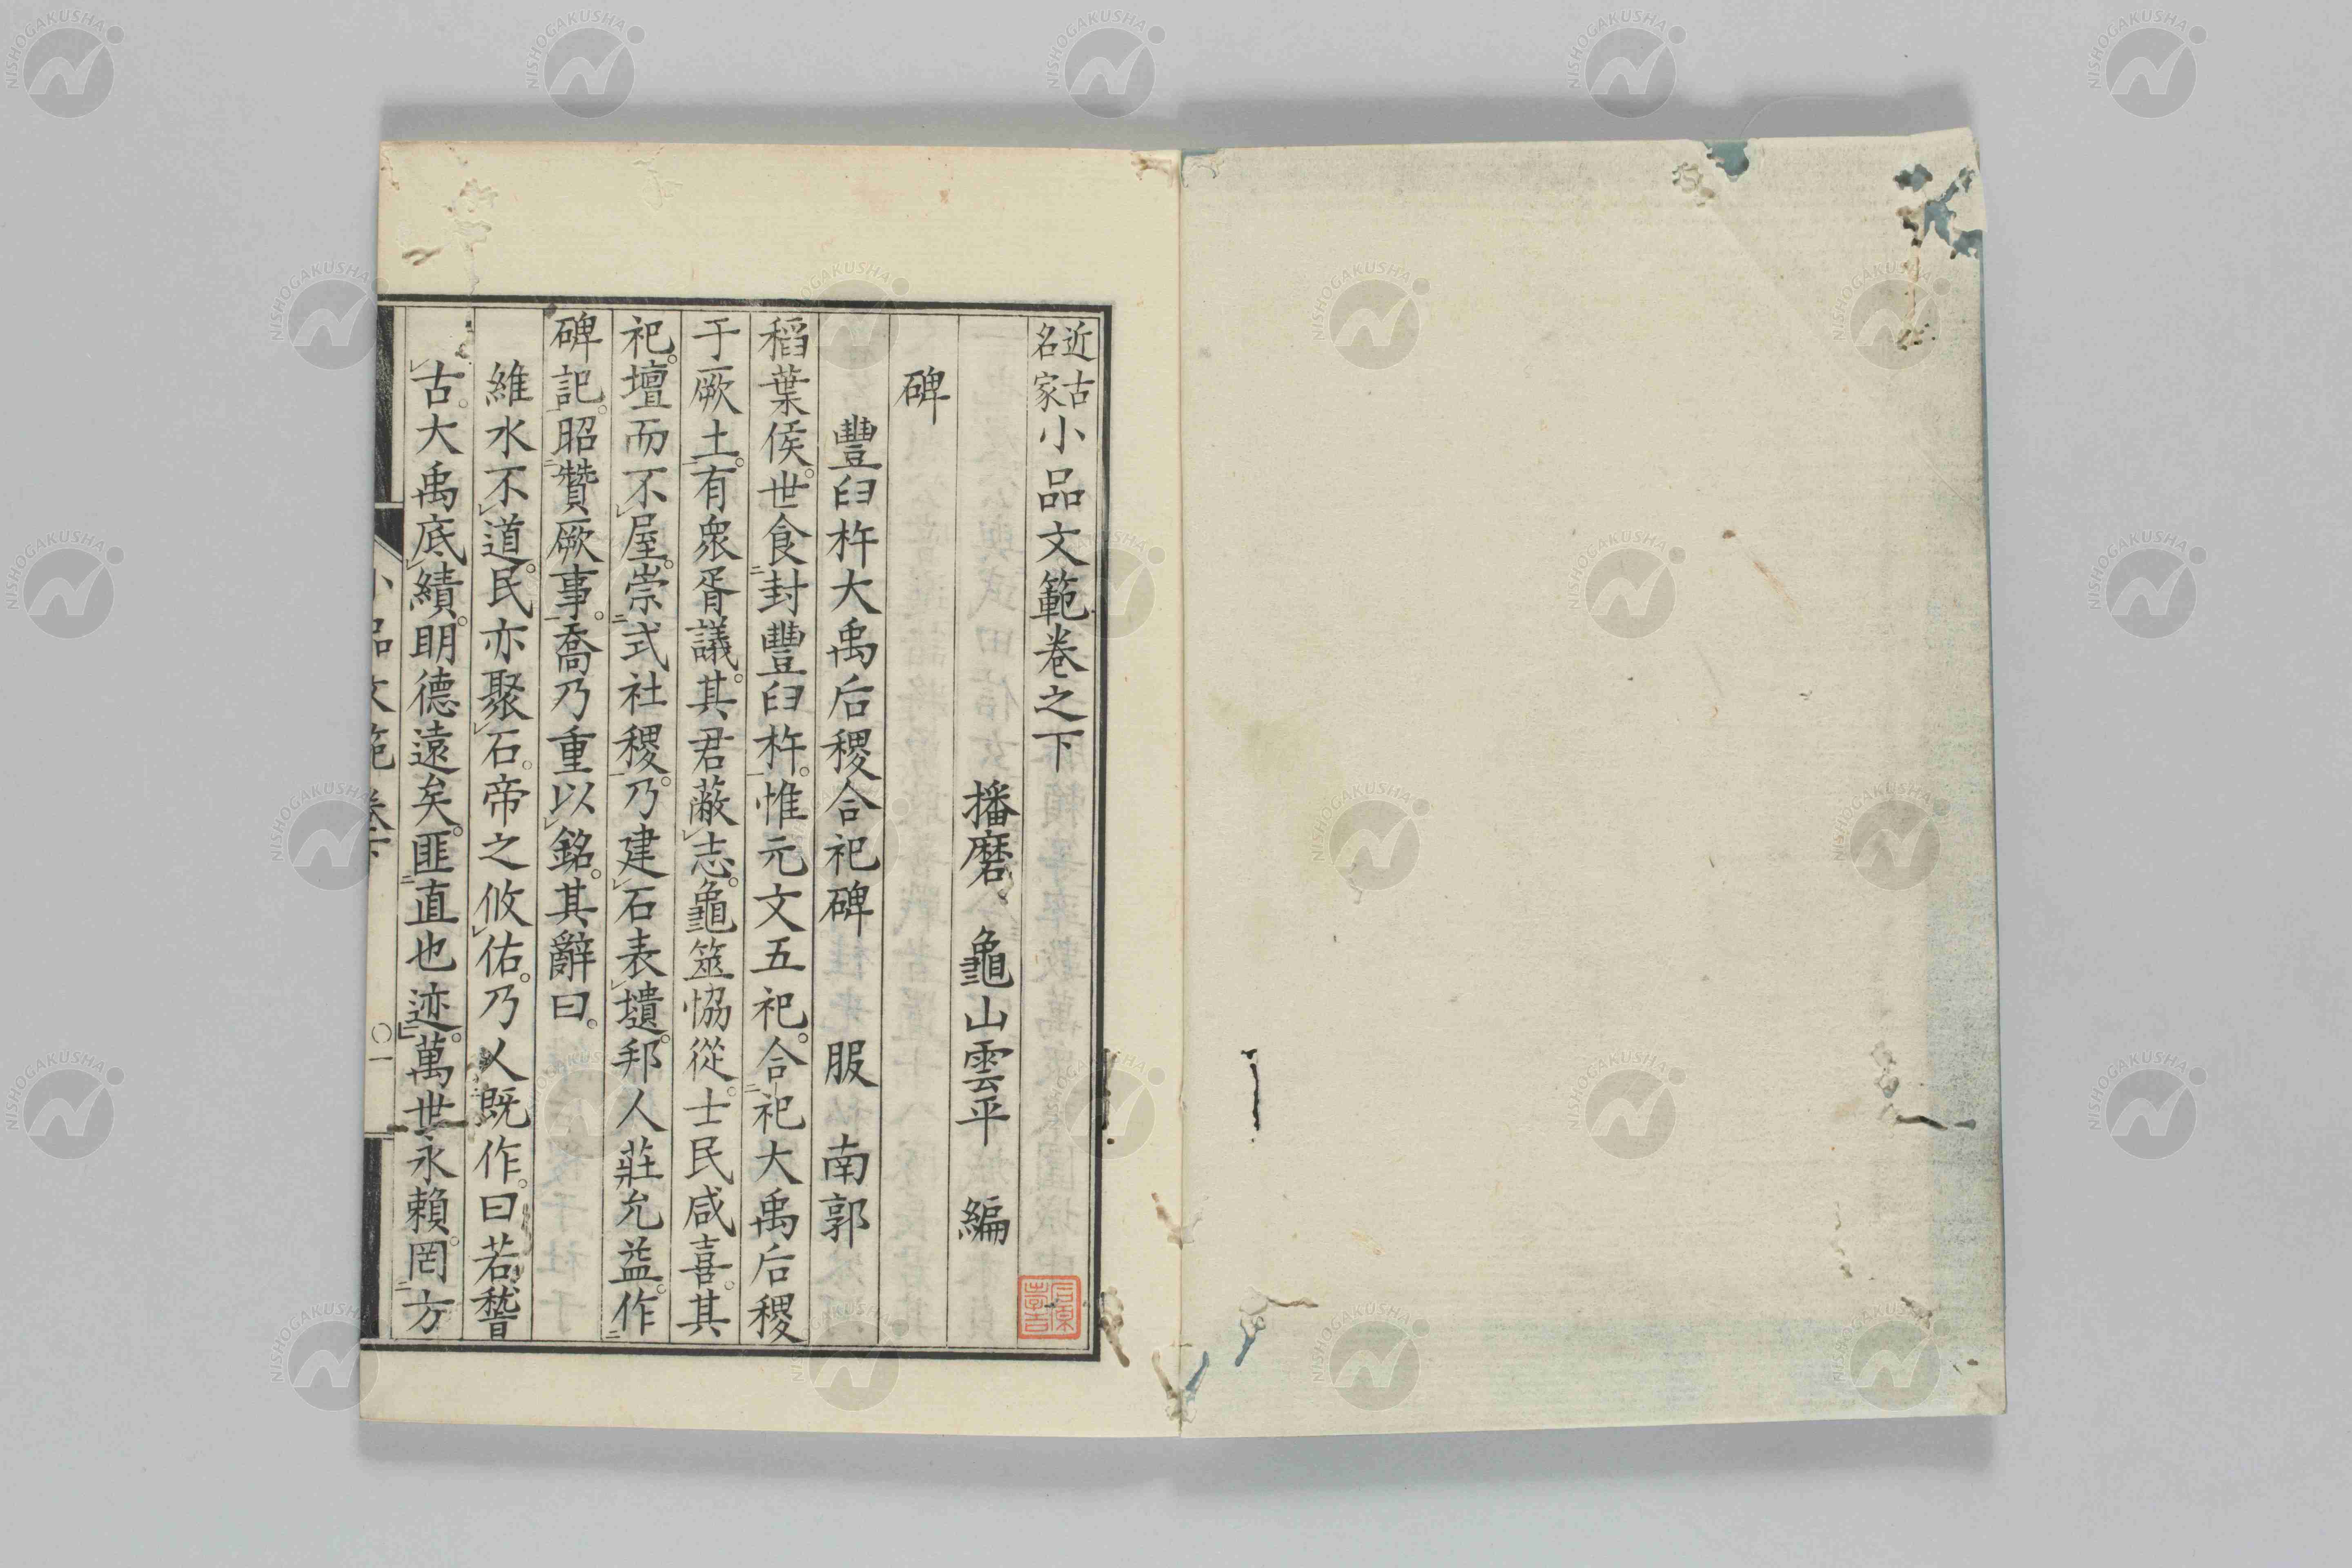 近古名家小品文範卷之下
播磨 龜山雲平 編
碑
豐臼杵大禹后稷合祀碑 服 南郭
稻葉侯。世食封豐臼杵。惟元文五祀。合祀大禹后稷
于厥土。有衆胥議。其君蔽志。龜筮恊從。士民咸喜。其
祀。壇而不屋。崇式社稷。乃建石表壝。邦人莊允益。作
碑記。昭贊厥事。喬乃重以銘。其辭曰。
維水不道。民亦聚石。帝之攸佑。乃乂既作。曰若稽
古。大禹底績。明德遠矣。匪直也迹。萬世永賴。罔方
小品文範 卷下 〇一
NISHOGAKUSHA